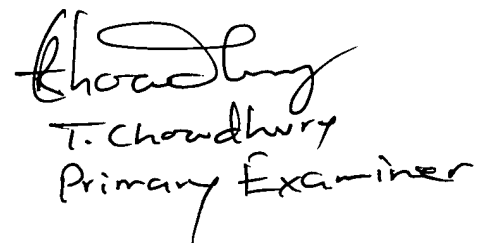 Choudhury
T. Chowdhury
Primary Examiner